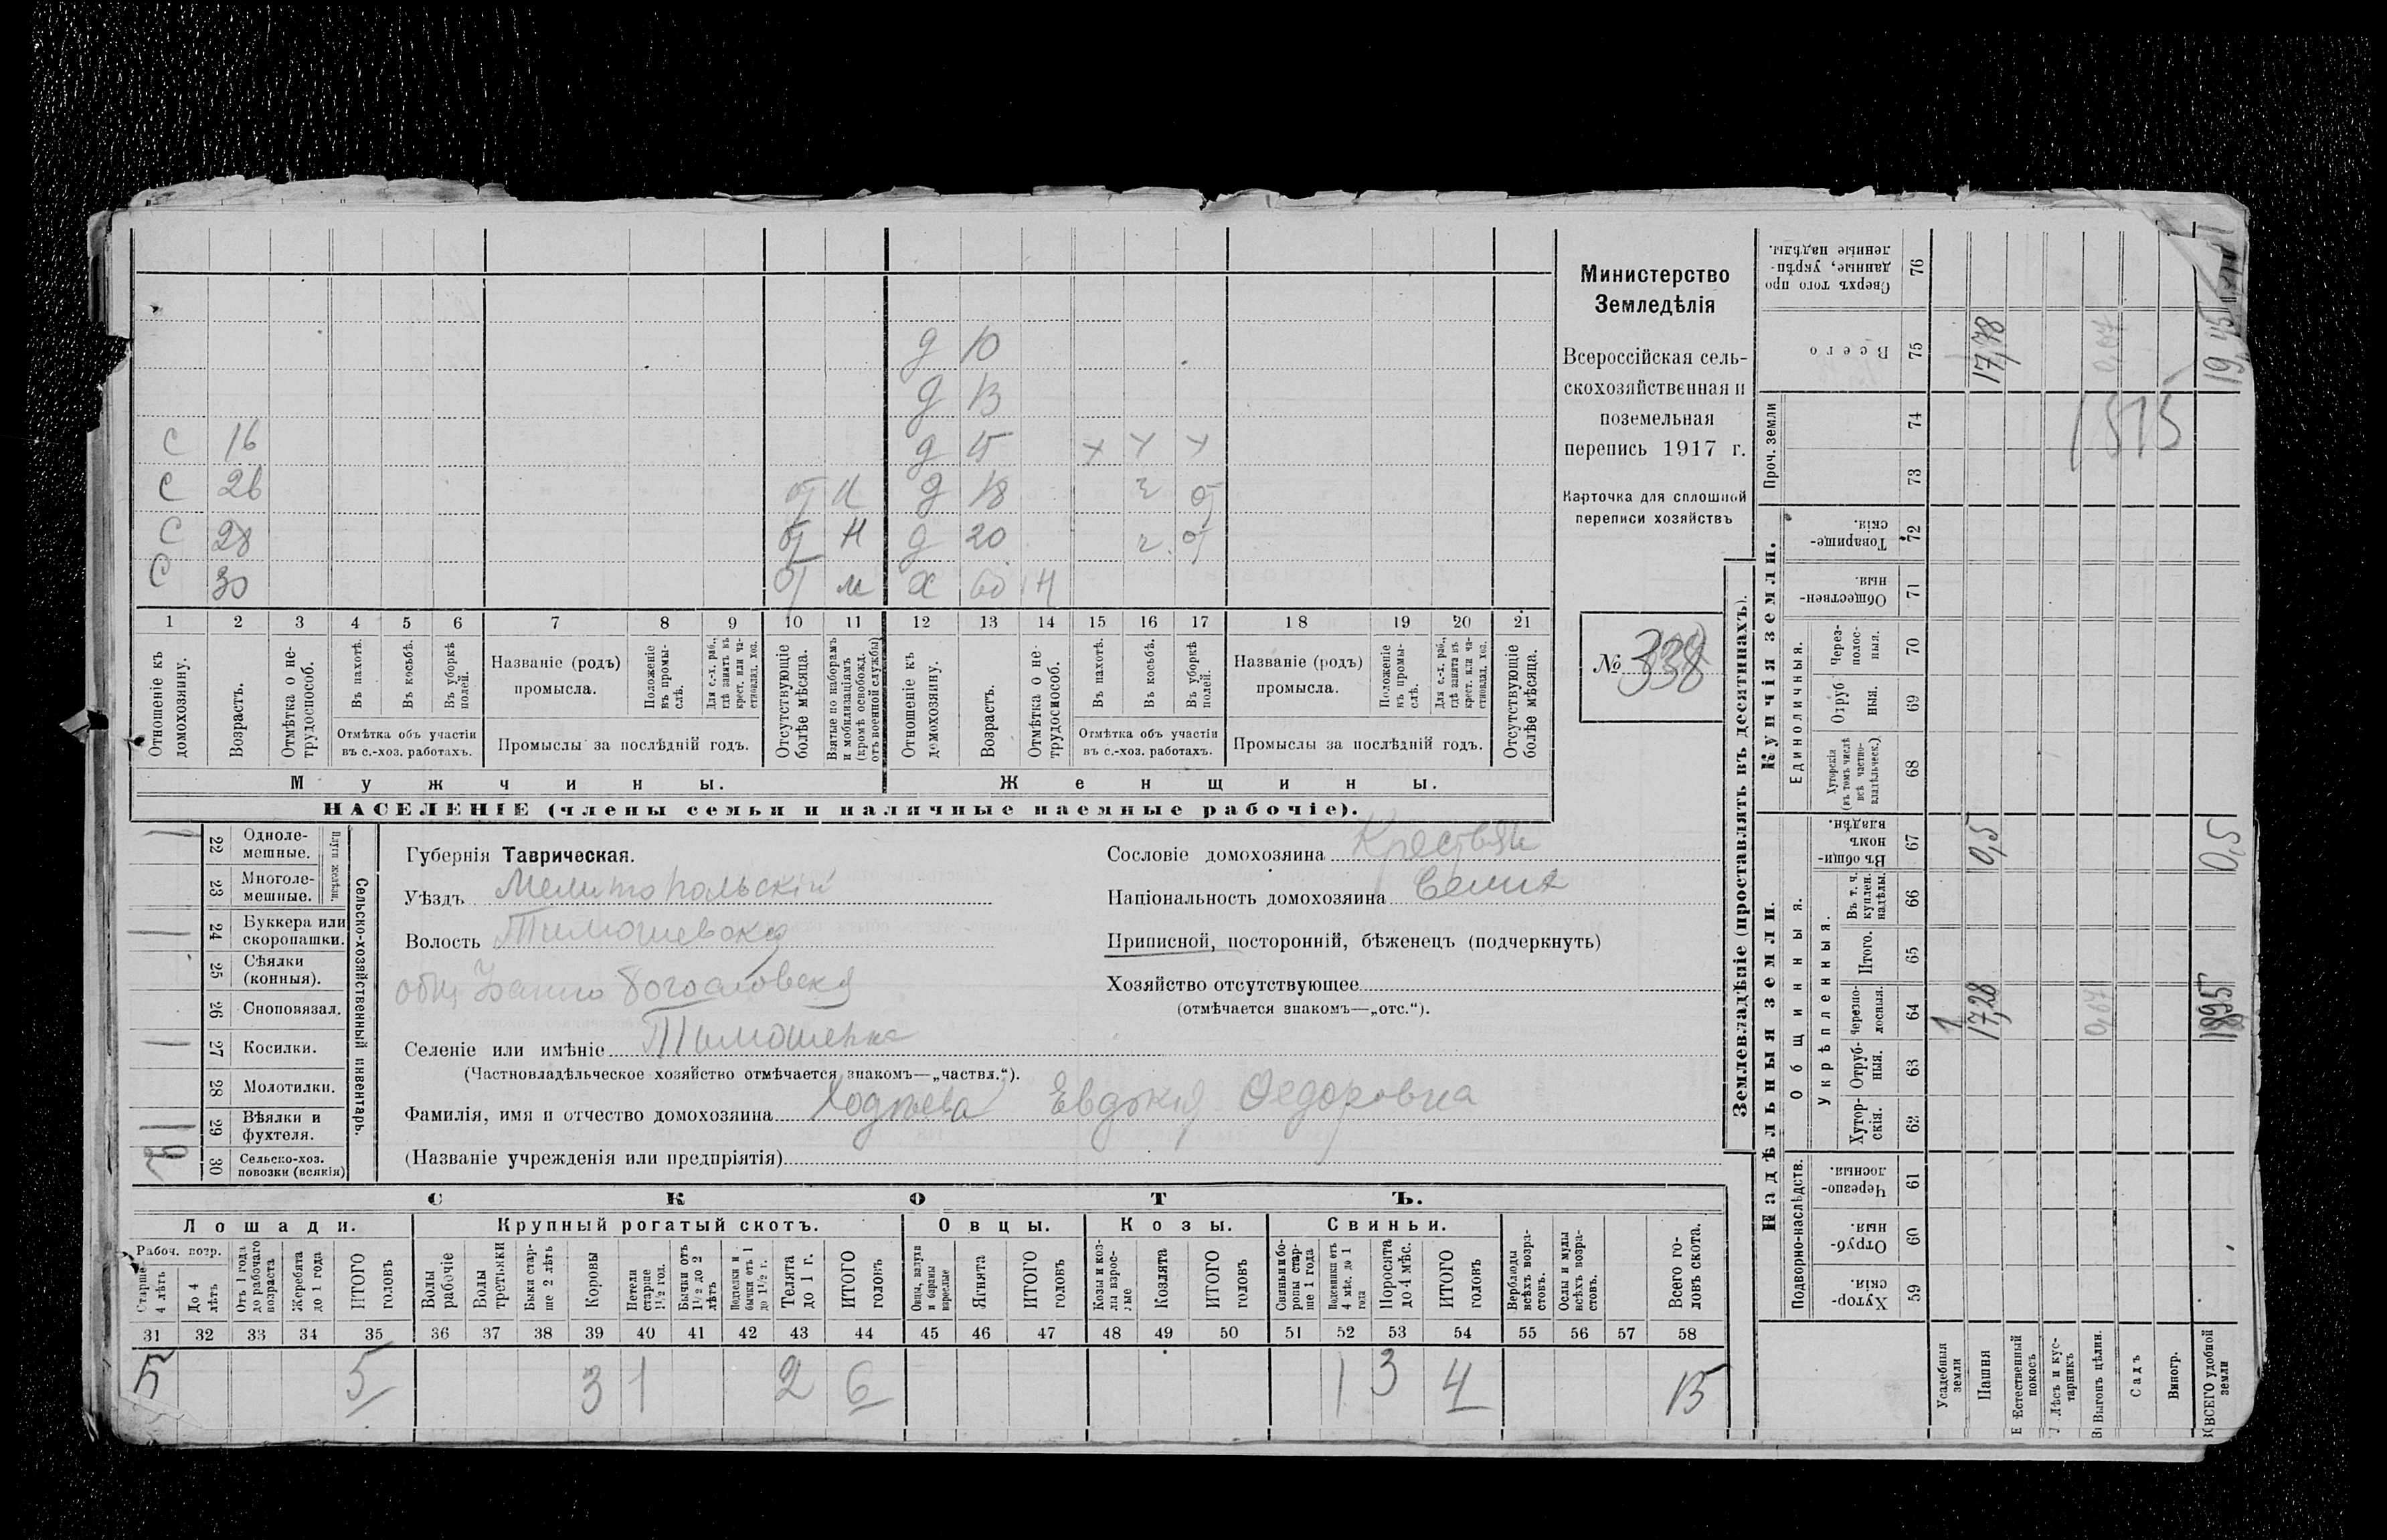 д 10
д 13
С 16 д 15 х х х
С 26 от Н д 18 г от
С 28 от Н д 20 г от
С 30 от м х 60 Н
1 2 3 4 5 6 7 8 9 10 11 12 13 14 15 16 17 18 19 20 21
Отношеніе къ домохозяину.
Возрастъ.
Отмѣтка о не-
трудоспособ.
Въ пахотѣ.
Въ косьбѣ.
Въ уборкѣ полей.
Отмѣтка объ участіи
въ с.-хоз. работахъ.
Названіе (родъ)
промысла.
Положеніе въ промы-
слѣ.
Для с.-х. раб.,
гдѣ занятъ въ
крест. или ча-
стновлад. хоз.
Промыслы за послѣдній годъ.
Отсутствующіе
болѣе мѣсяца.
Взятые по наборамъ
и мобилизаціямъ
(кромѣ освобожд.
отъ военной службы)
Отношеніе къ
домохозяину.
Возрастъ.
Отмѣтка о не-
трудоспособ.
Въ пахотѣ.
Въ косьбѣ.
Въ уборкѣ полей.
Отмѣтка объ участіи
въ с.-хоз. работахъ.
Названіе (родъ)
промысла.
Положеніе въ промы-
слѣ.
Для с.-х. раб.,
гдѣ занята въ
крест. или ча-
стновлад. хоз.
Промыслы за послѣдній годъ.
Отсутствующіе
болѣе мѣсяца.
Мужчины. Женщины.
НАСЕЛЕНІЕ (члены семьи и наличные наемные рабочіе).
Министерство
Земледѣлія
Всероссійская сель-
скохозяйственная и
поземельная
перепись 1917 г.
Карточка для сплошной
переписи хозяйствъ
№ 338
22 Одноле-
мешные.
23 Многоле-
мешные.
Плуги желѣзн.
24 Буккера или
скоропашки.
25 Сѣялки
(конныя).
26 Сноповязал.
27 Косилки.
28 Молотилки.
29 Вѣялки и
фухтеля.
30 Сельско-хоз.
повозки (всякія)
Сельско-хозяйственный инвентарь.
Губернія Таврическая.
Уѣздъ Мелитопольскій
Волость Тимошевская
общ Іоанно Богословская
Селеніе или имѣніе Тимошенка
(Частновладѣльческое хозяйство отмѣчается знакомъ—„частвл.“).
Фамилія, имя и отчество домохозяина Евдокія Федоровна
(Названіе учрежденія или предпріятія)
Сословіе домохозяина Крестьян
Національность домохозяина
Приписной, посторонній, бѣженецъ (подчеркнуть)
Хозяйство отсутствующее
(отмѣчается знакомъ—„отс.“).
СКОТЪ.
Лошади. Крупный рогатый скотъ. Овцы. Козы. Свиньи.
Рабоч. возр.
Старше
4 лѣтъ
До 4
лѣтъ
Отъ 1 года
до рабочаго
возраста
Жеребята
до 1 года
ИТОГО
головъ
Волы
рабочіе
Волы
третьяки
Быки стар-
ше 2 лѣтъ
Коровы
Нетели
старше
1½ год.
Бычки отъ
1½ до 2
лѣтъ
Подтелки и
бычки отъ 1
до 1½ г.
Телята
до 1 г.
ИТОГО
головъ
Овцы, валухи
и бараны
взрослые
Ягнята
ИТОГО
головъ
Козы и коз-
лы взрос-
лые
Козлята
ИТОГО
головъ
Свиньи и бо-
ровы стар-
ше 1 года
Подсвинки отъ
4 мѣс. до 1
года
Поросята
до 4 мѣс.
ИТОГО
головъ
Верблюды
всѣхъ возра-
стовъ.
Ослы и мулы
всѣхъ возра-
стовъ.
Всего го-
ловъ скота.
31 32 33 34 35 36 37 38 39 40 41 42 43 44 45 46 47 48 49 50 51 52 53 54 55 56 57 58
5 5 3 1 2 6 1 3 4 15
Землевладѣніе (проставлять въ десятинахъ).
Сверхъ того про
данные, укрѣп-
ленные надѣлы. 76
Всего 75 17,78 0,07 19,45
Проч. земли 74 73 1515
Купчія земли.
Товарище-
скія. 72
Обществен-
ныя. 71
Единоличныя.
Через-
полос-
ныя. 70
Отруб
ныя. 69
Хуторскія
(въ томъ числѣ
всѣ частно-
владѣльческ.) 68
Надѣльныя земли.
Общинныя.
Въ общин-
номъ
владѣн. 67 0,5 0,5
Укрѣпленныя.
Въ т. ч.
куплен.
надѣлы. 66
Итого. 65
Черезпо-
лосныя. 64 1 17,28 0,07 1895
Отруб-
ныя. 63
Хутор-
скія. 62
Подворно-наслѣдств.
Черезпо-
лосныя. 61
Отруб-
ныя. 60
Хутор-
скія. 59
Усадебныя
земли
Пашня
Естественный
покосъ
Лѣсъ и кус-
тарникъ
Выгонъ цѣлин.
Садъ
Виногр.
ВСЕГО удобной
земли